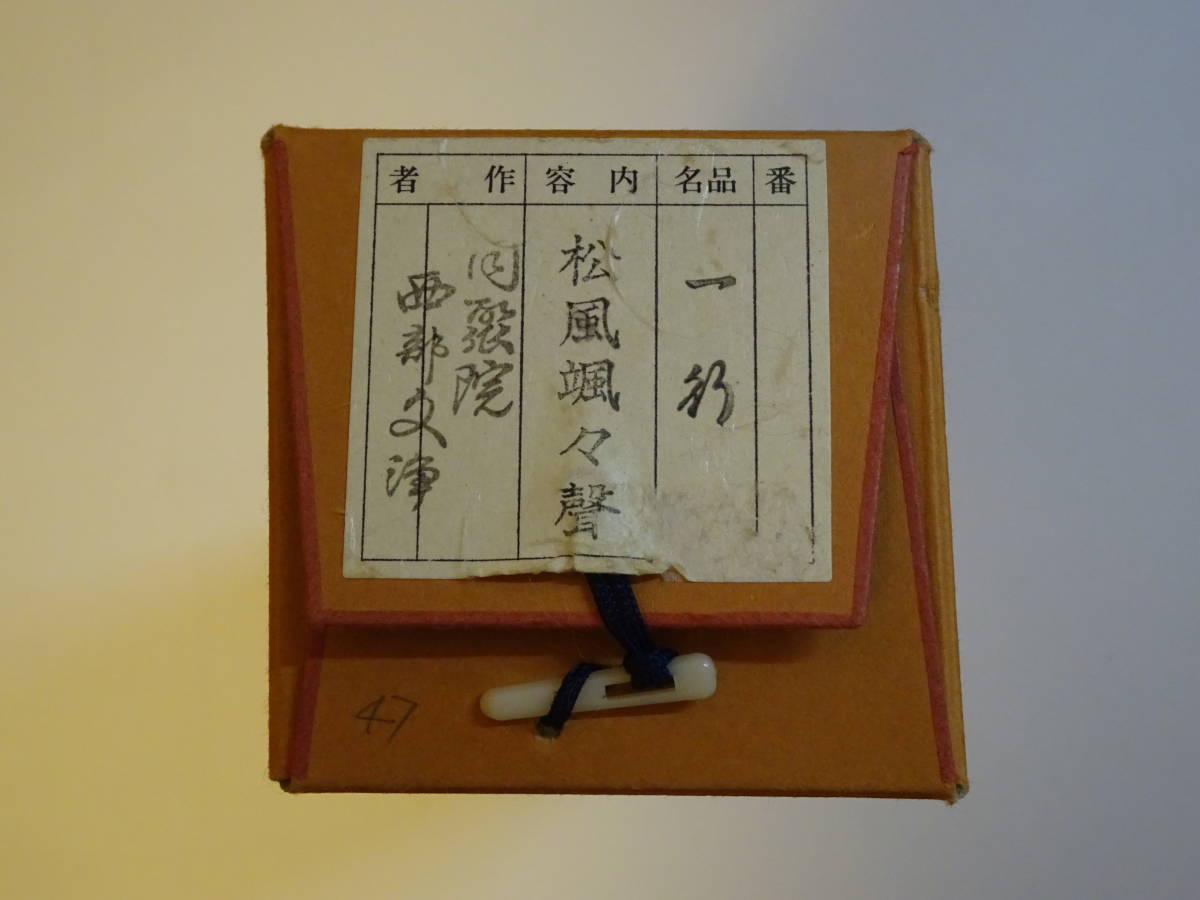 番
品名
一行
内容
松風颯々聲
作者
同聚院
西部文浄
47